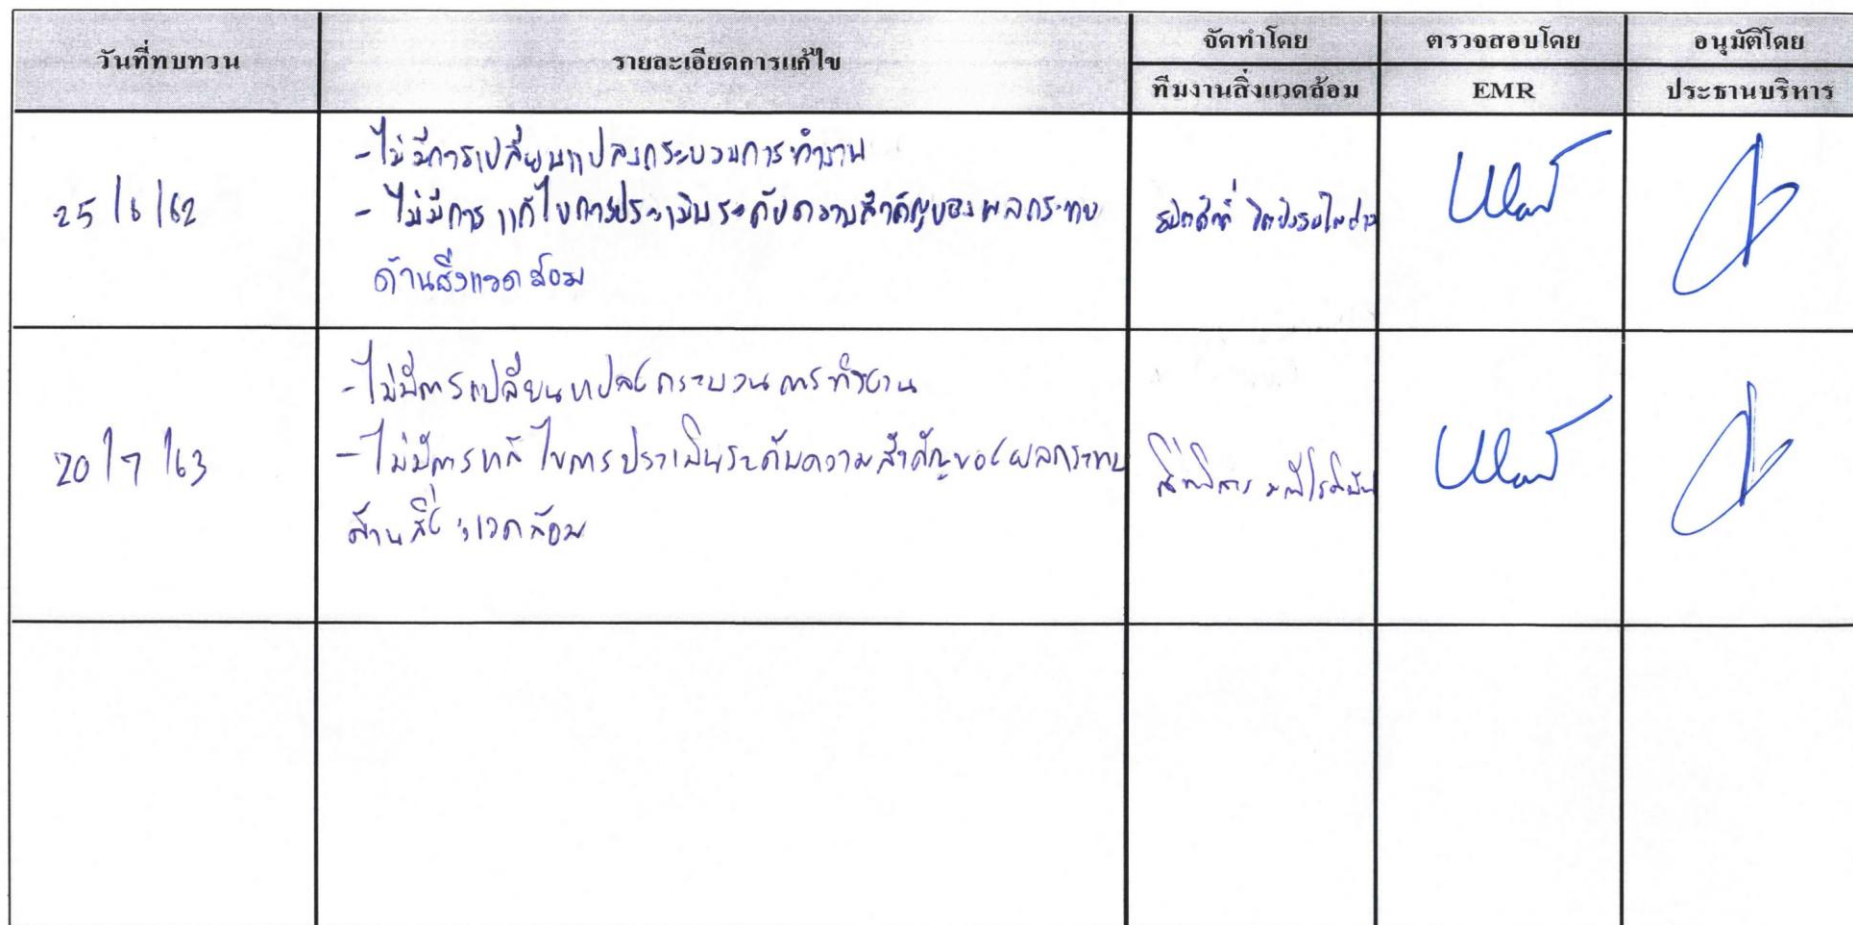 วันที่ทบทวน รายละเอียดการแก้ไข จัดทำโดย ตรวจสอบโดย อนุมัติโดย
ทีมงานสิ่งแวดล้อม EMR ประธานบริหาร
- ไม่มีการเปลี่ยนแปลงกระบวนการทำงาน
25/6/62 - ไม่มีการแก้ไขการประเมินระดับความสำคัญของผลกระทบ
ด้านสิ่งแวดล้อม
- ไม่มีการเปลี่ยนแปลงกระบวนการทำงาน
20/7/63 - ไม่มีการแก้ไขการประเมินระดับความสำคัญของผลกระทบ
ด้านสิ่งแวดล้อม